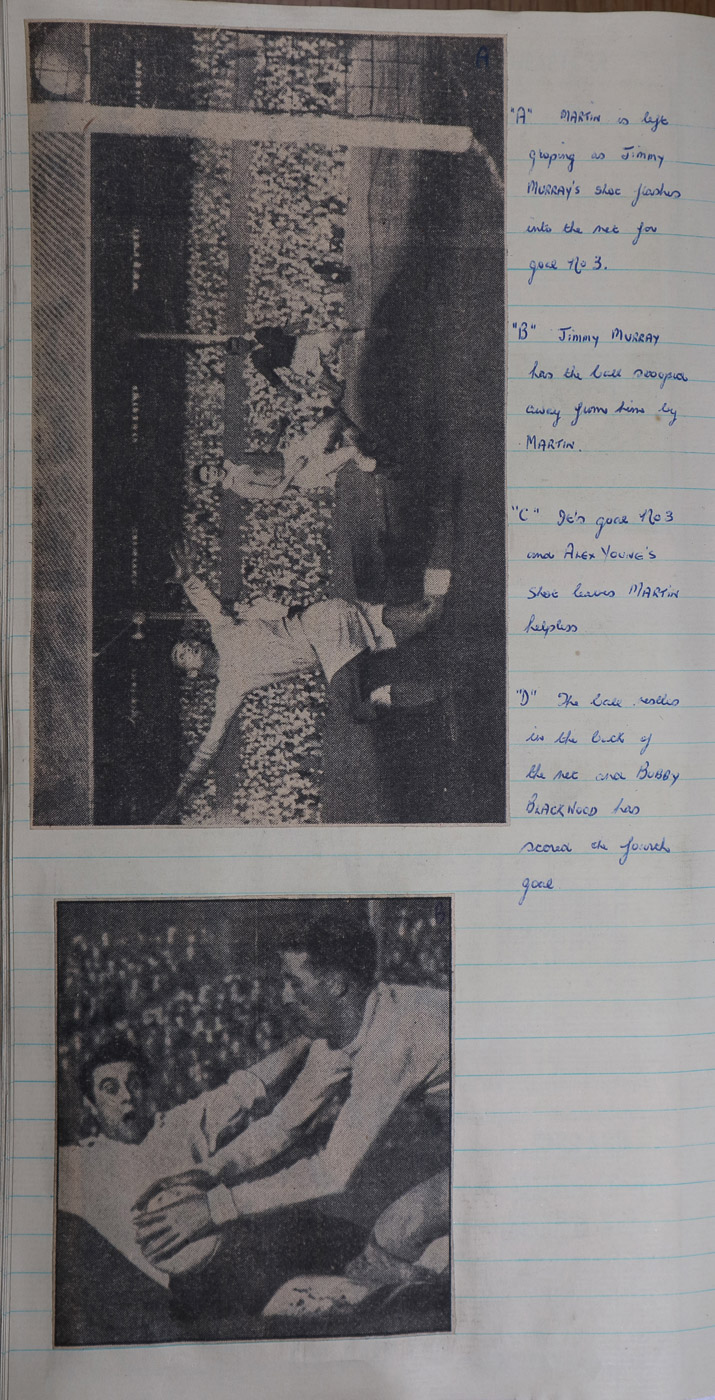 A
"A" MARTIN is left
groping as Jimmy
MURRAY'S shot flashes
into the net for
goal No 3.
"B" Jimmy MURRAY
has the ball scooped
away from him by
MARTIN.
"C" It's goal No 3
and ALEX YOUNG'S
shot leaves MARTIN
helpless
"D" The ball rests
in the back of
the net and BOBBY
BLACKWOOD has
scored the fourth
goal
B